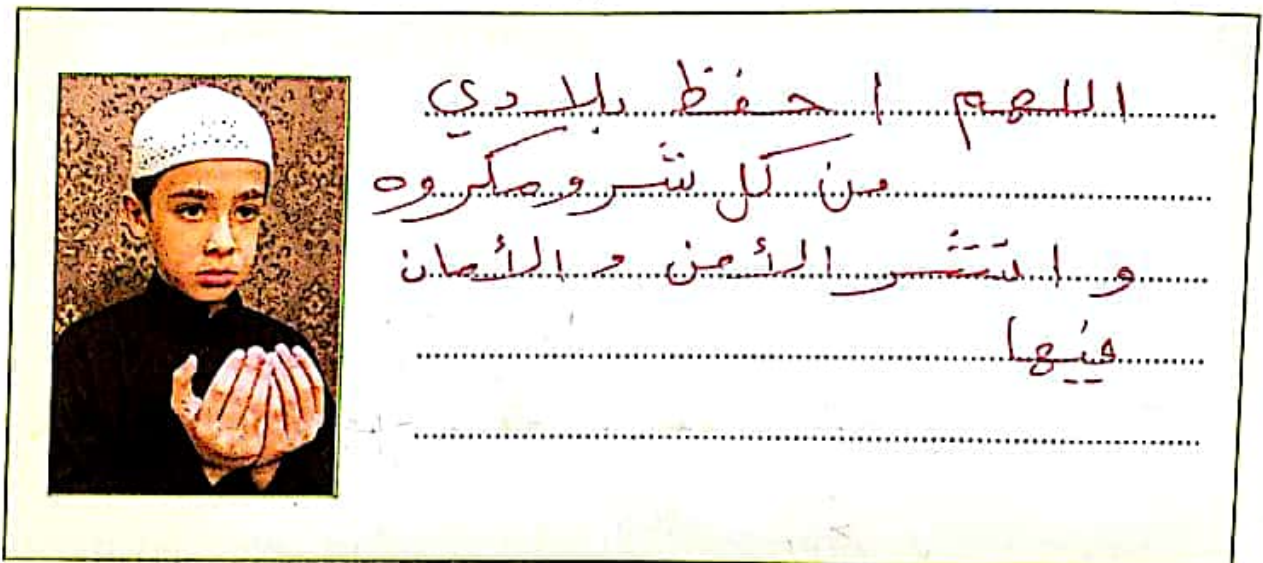 اللهم احفظ بلادي
من كل شر ومكروه
و انشر الأمن و الأمان
فيها